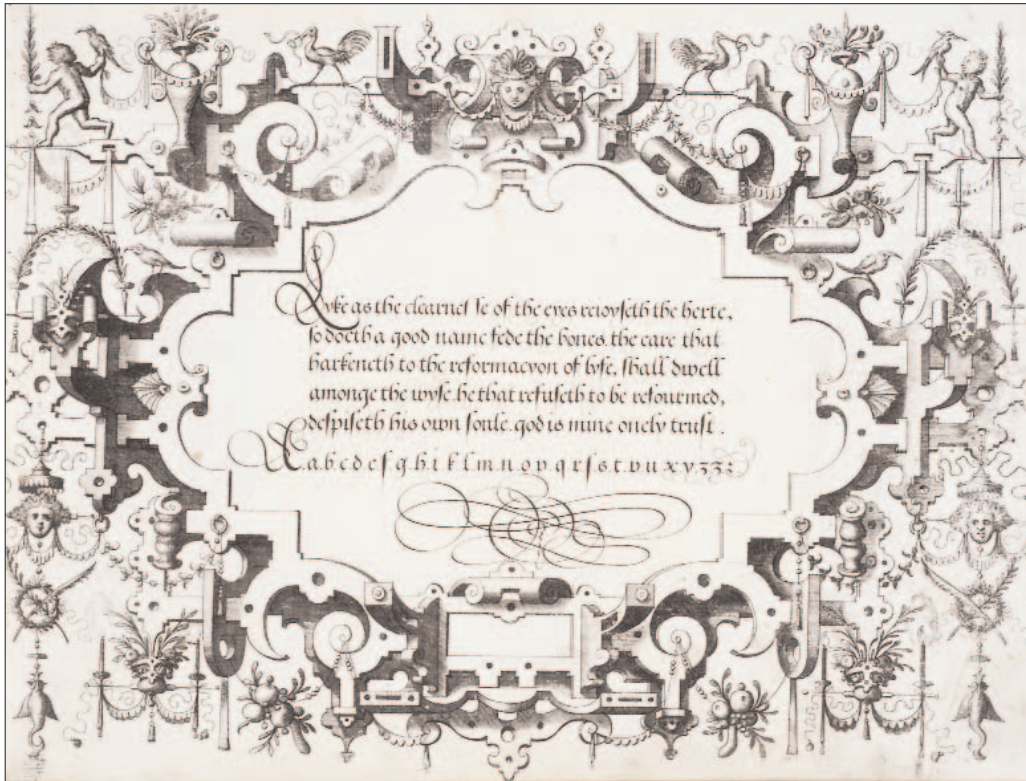 Lyke as the clearnesse of the eyes reioyseth the herte,
so doeth a good name fede the bones. the eare that
harkeneth to the reformacyon of lyfe, shall dwell
amonge the wyse. he that refuseth to be refourmed,
despiseth his own soule. god is mine onely trust.
A.a.b.c.d.e.f.g.h.i.k.l.m.n.o.p.q.r.s.s.t.v.u.x.y.z.z: